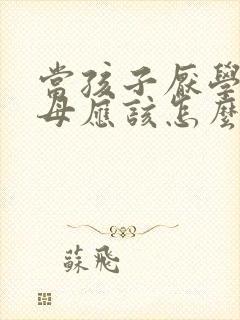 當孩子厭學
母應該怎麼
蘇飛